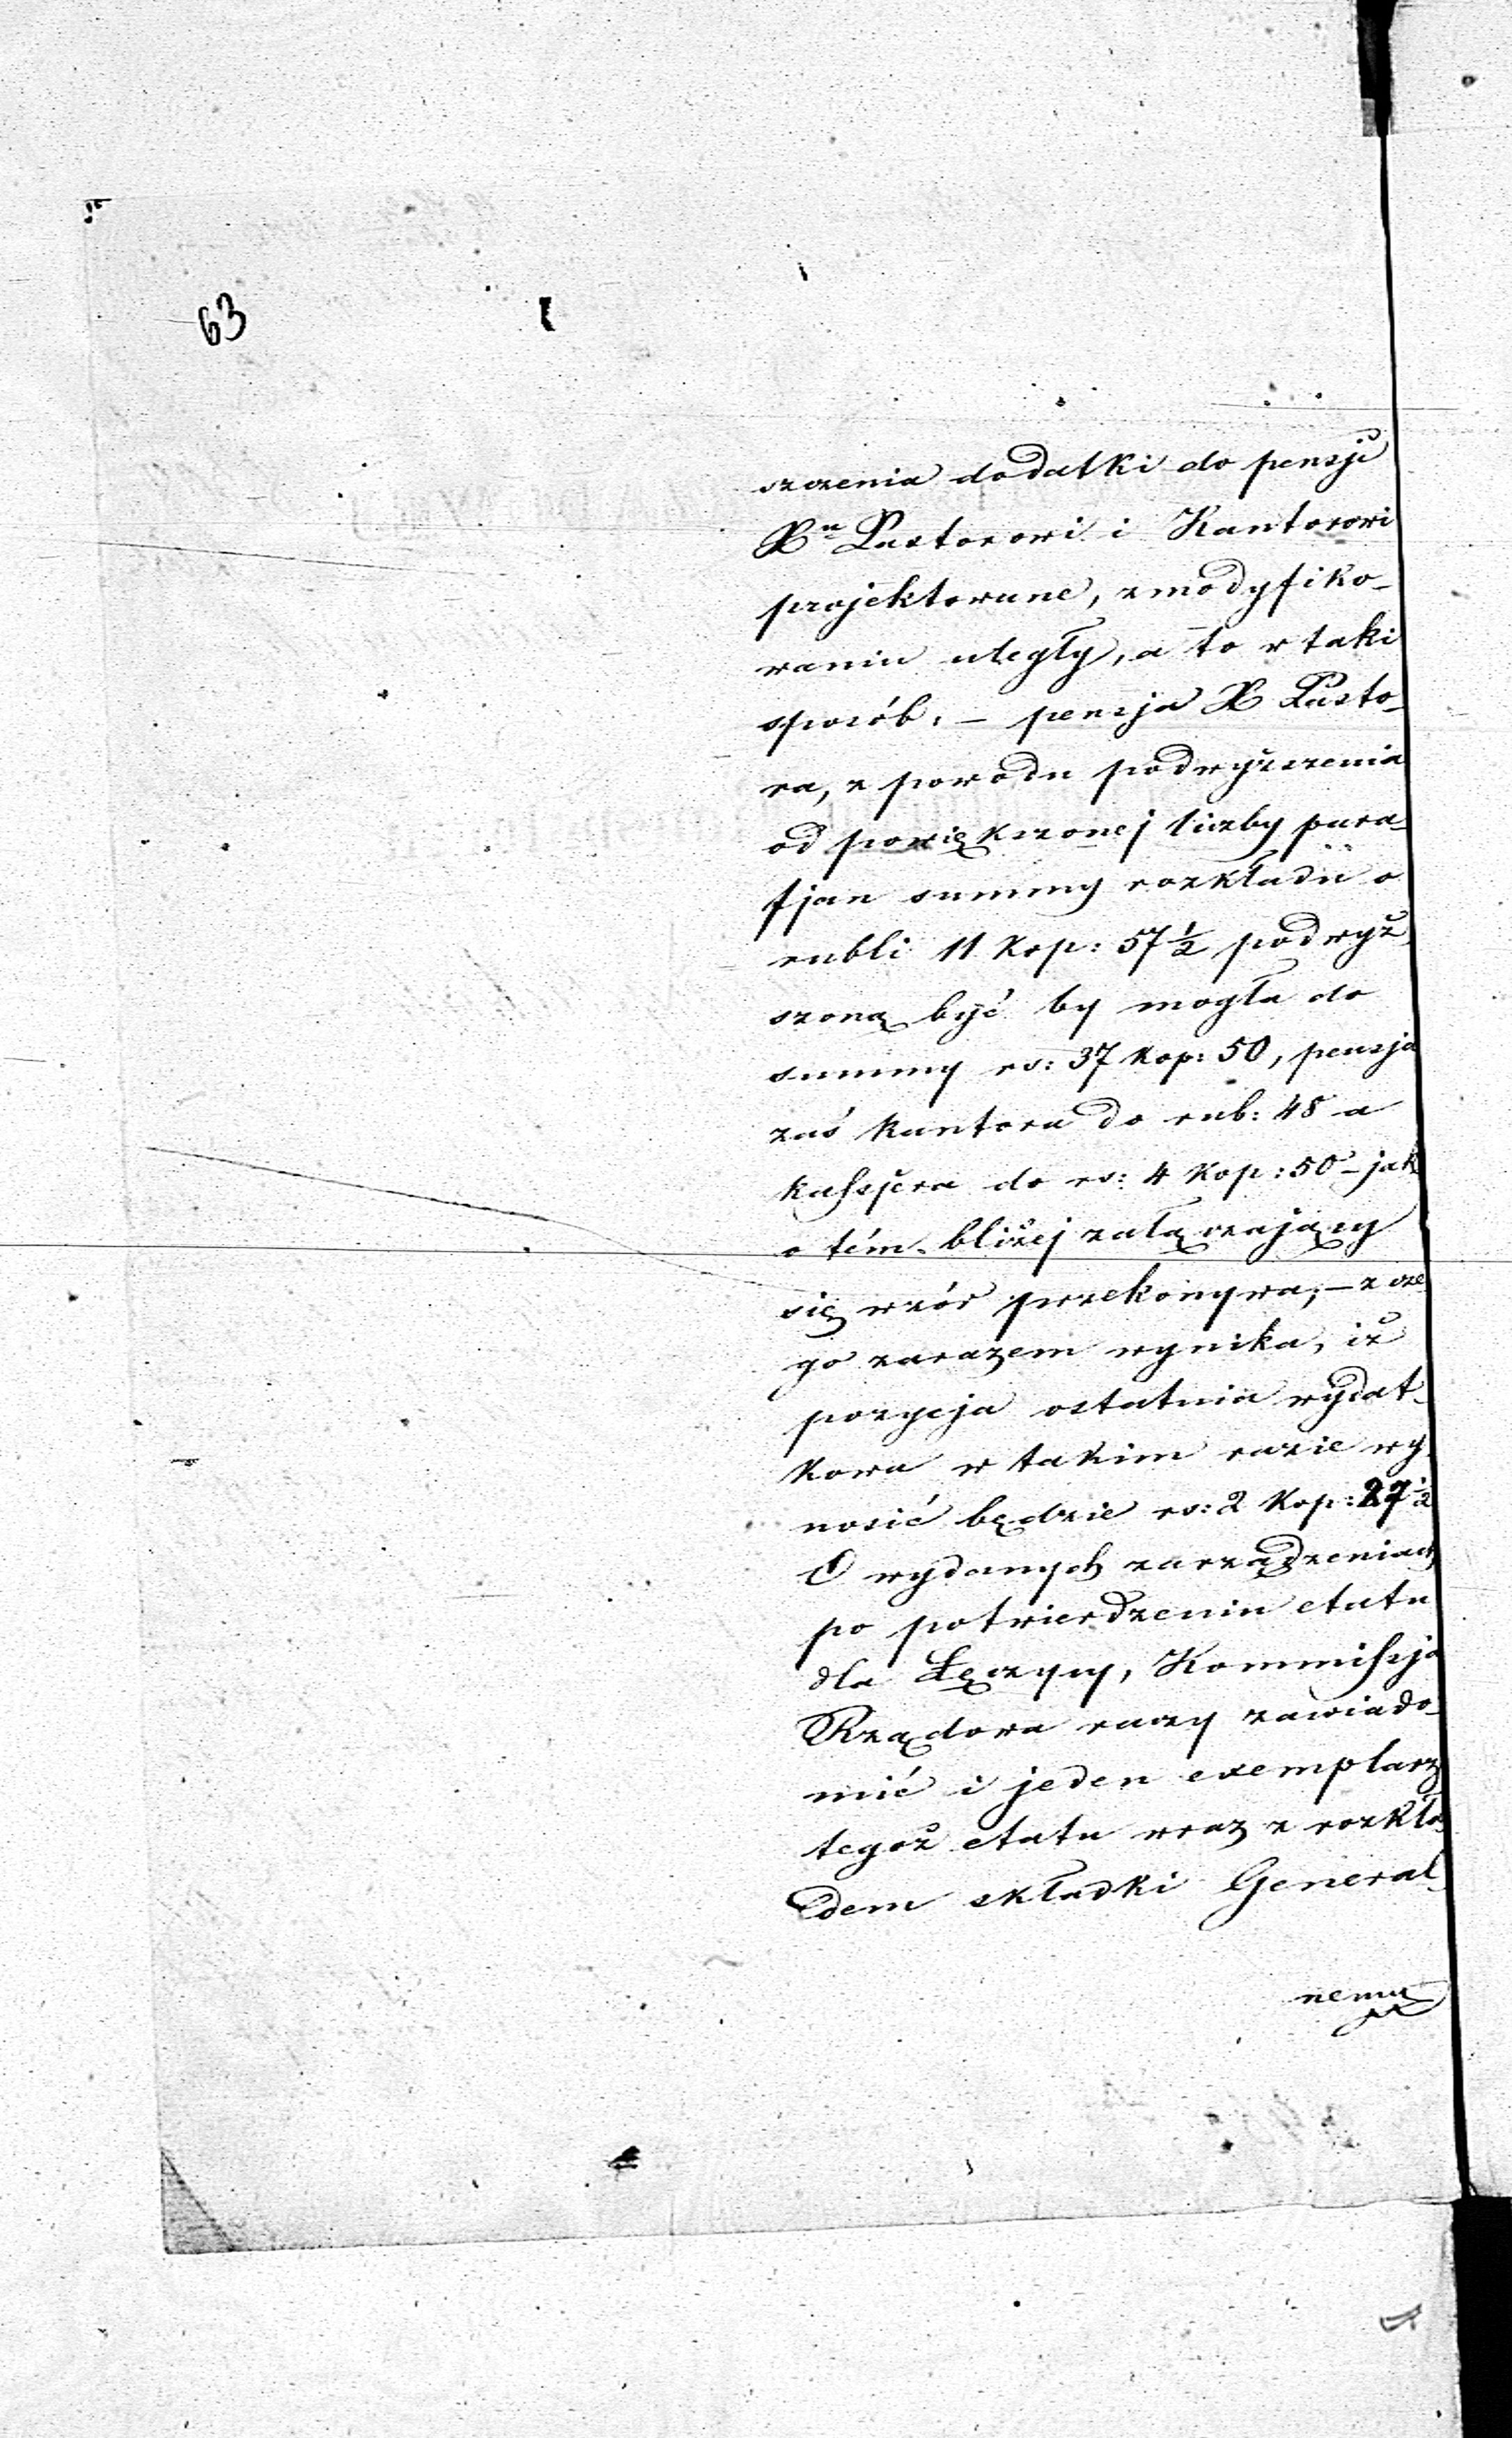 63
szczenia dodatki do pensji
Xu Pastorowi i Kantorowi
projektowane, zmodyfiko-
waniu uległy, a to w taki
sposób, – pensja X Pasto-
ra, z powodu podwyższenia
od powiększonej liczby para-
fjan summy rozkładu o
rubli 11 kop: 57½ podwyż
szoną być by mogła do
summy rs: 37 kop: 50, pensja
zaś kantora do rub: 48 a
kassjera do rs: 4 kop: 50 – jak
o tém bliżej załączający
się wzór przekonywa, – z cze
go zarazem wynika, iż
pozycja ostatnia wydat-
kowa w takim razie wy-
nosić będzie rs: 2 kop: 27½
O wydanych zarządzeniach
po potwierdzeniu etatu
dla Łęczycy, Kommissja
Rządowa raczy zawiado-
mić i jeden exemplarz
tegoż etatu wraz z rozkła
dem składki General-
nemu